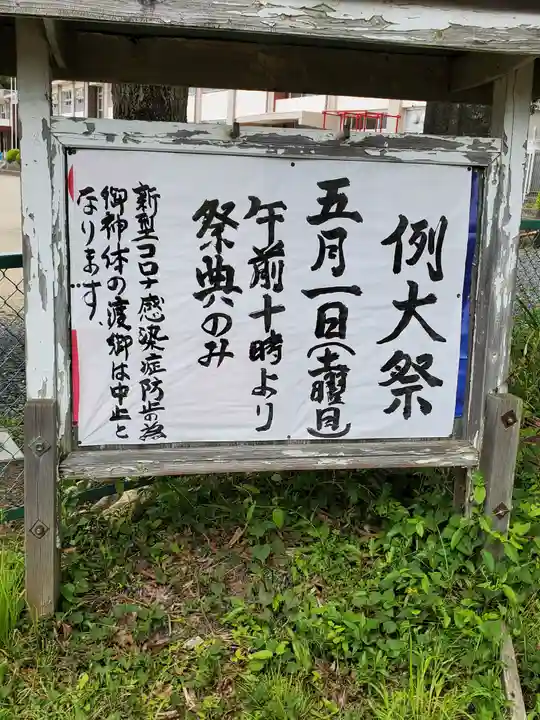 例大祭
五月一日(土曜日)
午前十時より
祭典のみ
新型コロナ感染症防止の為
御神体の渡御は中止と
なります。